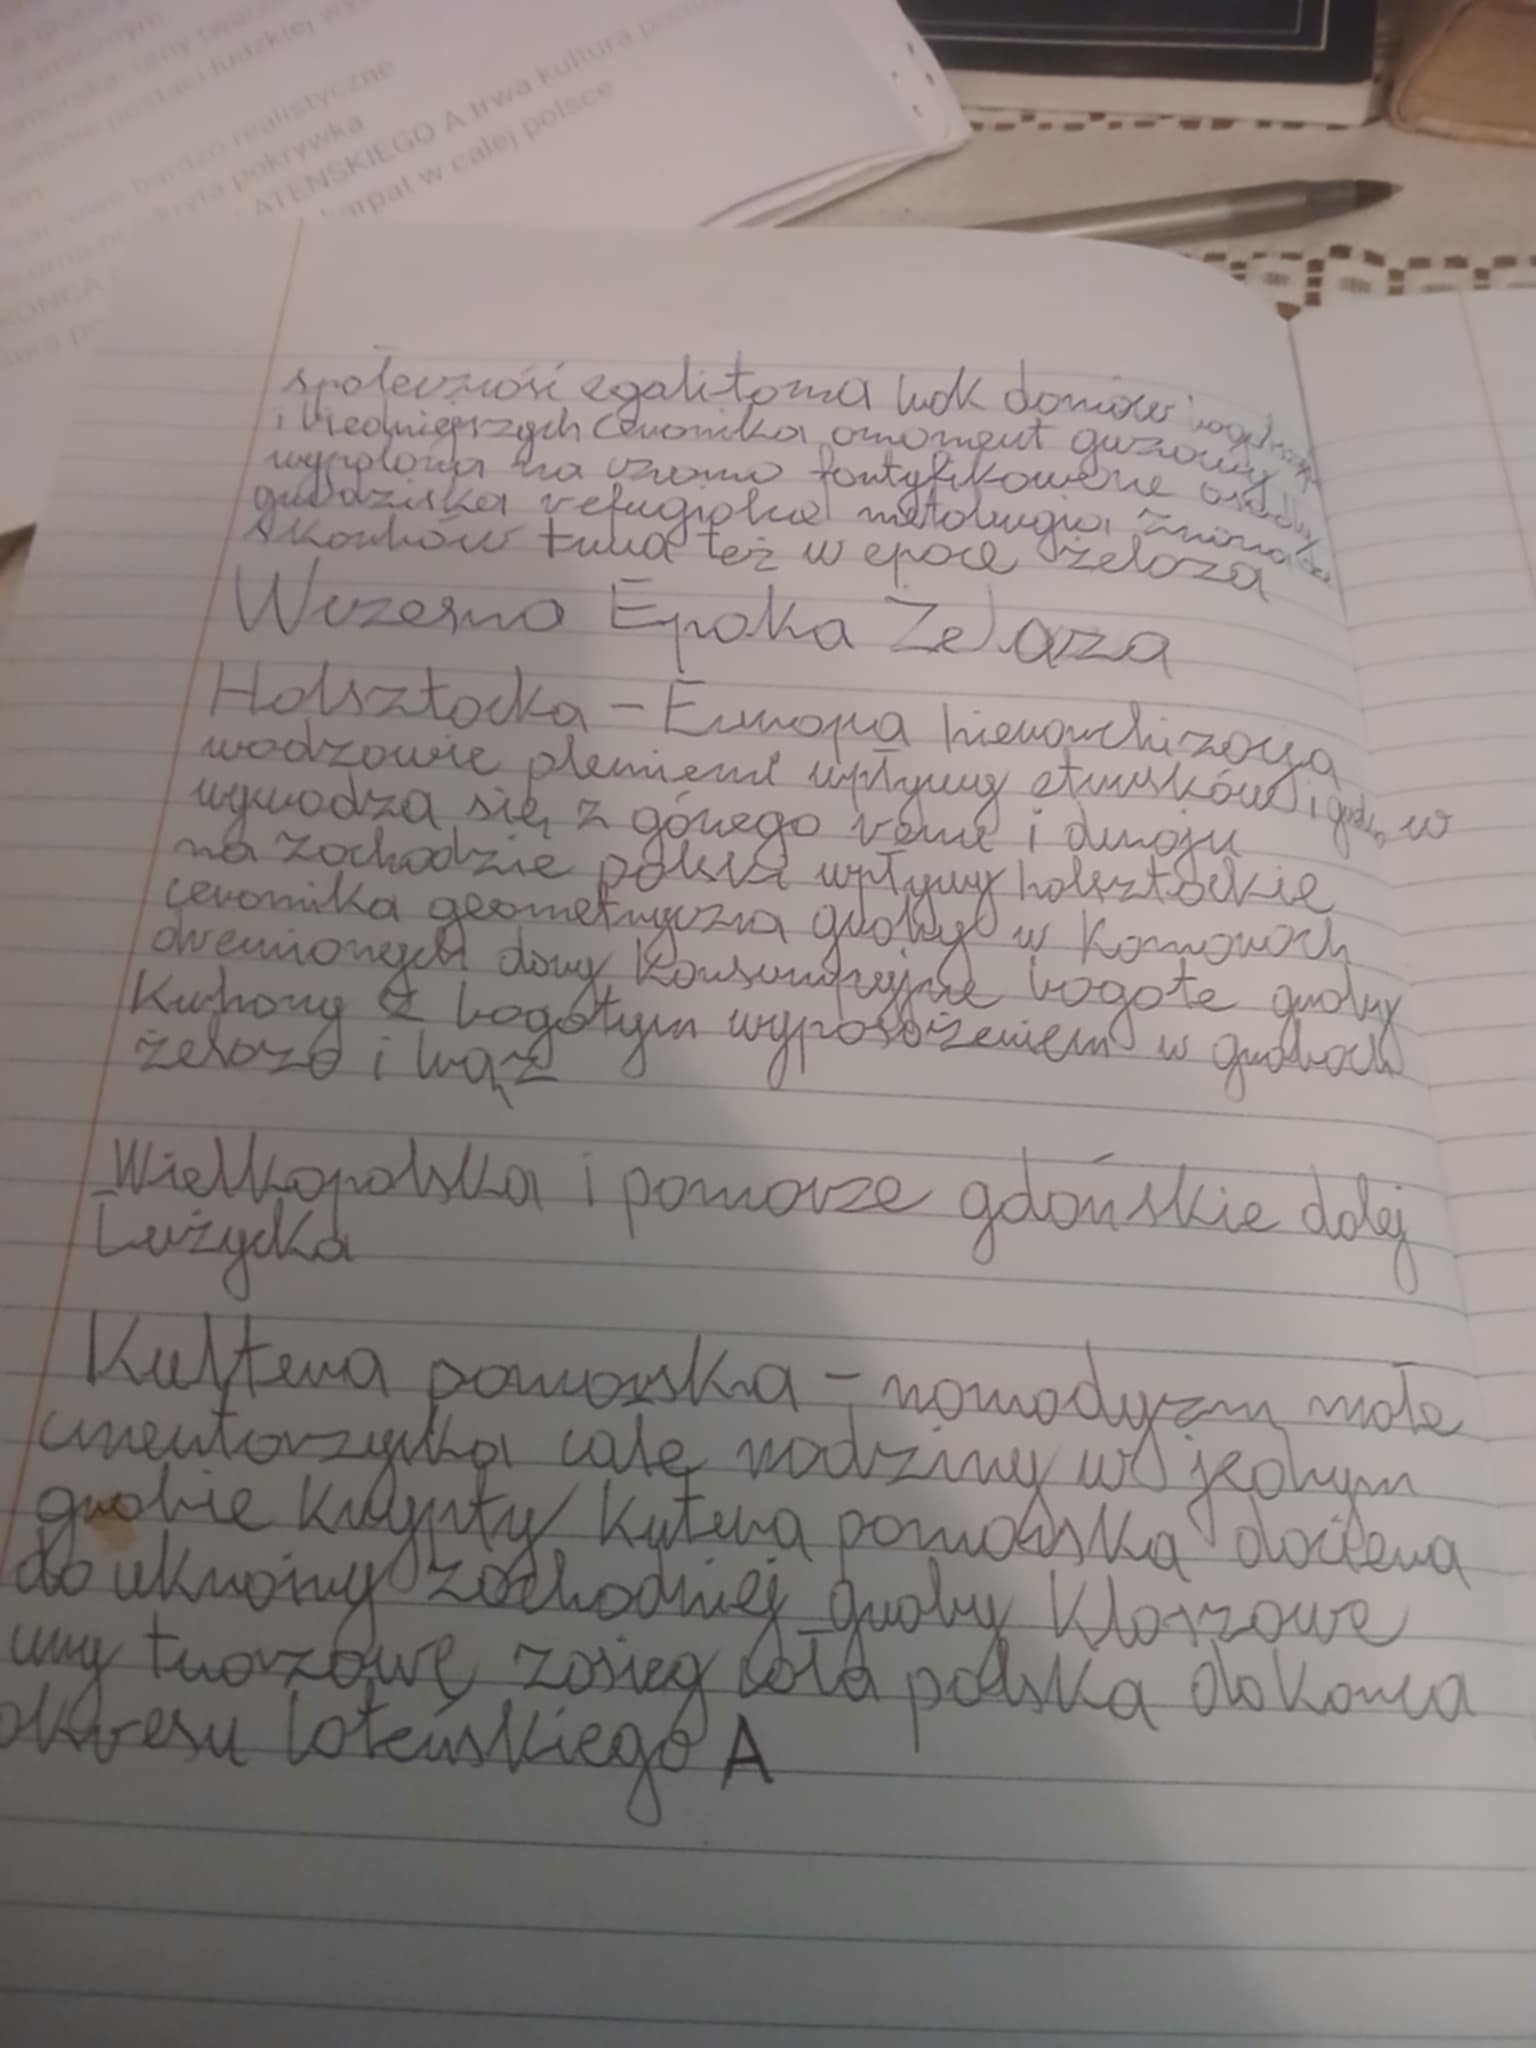 bardzo realistyczne
pokrywka
ATENSKIEGO A trwa kultura
w calej polsce
społeczność egalitarna brak domów
i biedniejszych ceramika ornament guzowy
wypalana na czarno fortyfikowane
grodziska refugialne metalurgia
skarbów trwa też w epoce żelaza
Wczesna Epoka Żelaza
Halsztacka – Europa hierarchizacja
wodzowie plemienni wpływy etrusków i w
wywodzą się z górnego renu i dunaju
na zachodzie polski wpływy halsztackie
ceramika geometryczna groby w Komorach
drewnionych dary konsumpcyjne bogate groby
Kurhany z bogatym wyposażeniem w grobach
żelazo i brąz
Wielkopolska i pomorze gdańskie dalej
Łużycka
Kultura pomorska – nomadyzm małe
cmentarzyska całe rodziny w jednym
grobie krypty kultura pomorska dociera
do ukrainy zachodniej groby kloszowe
urny twarzowe zasięg cała polska do końca
okresu lateńskiego A